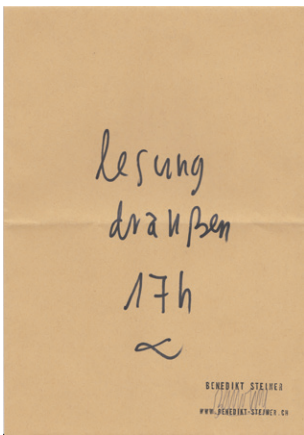 lesung
draußen
17h
BENEDIKT STEINER
WWW.BENEDIKT-STEINER.CH